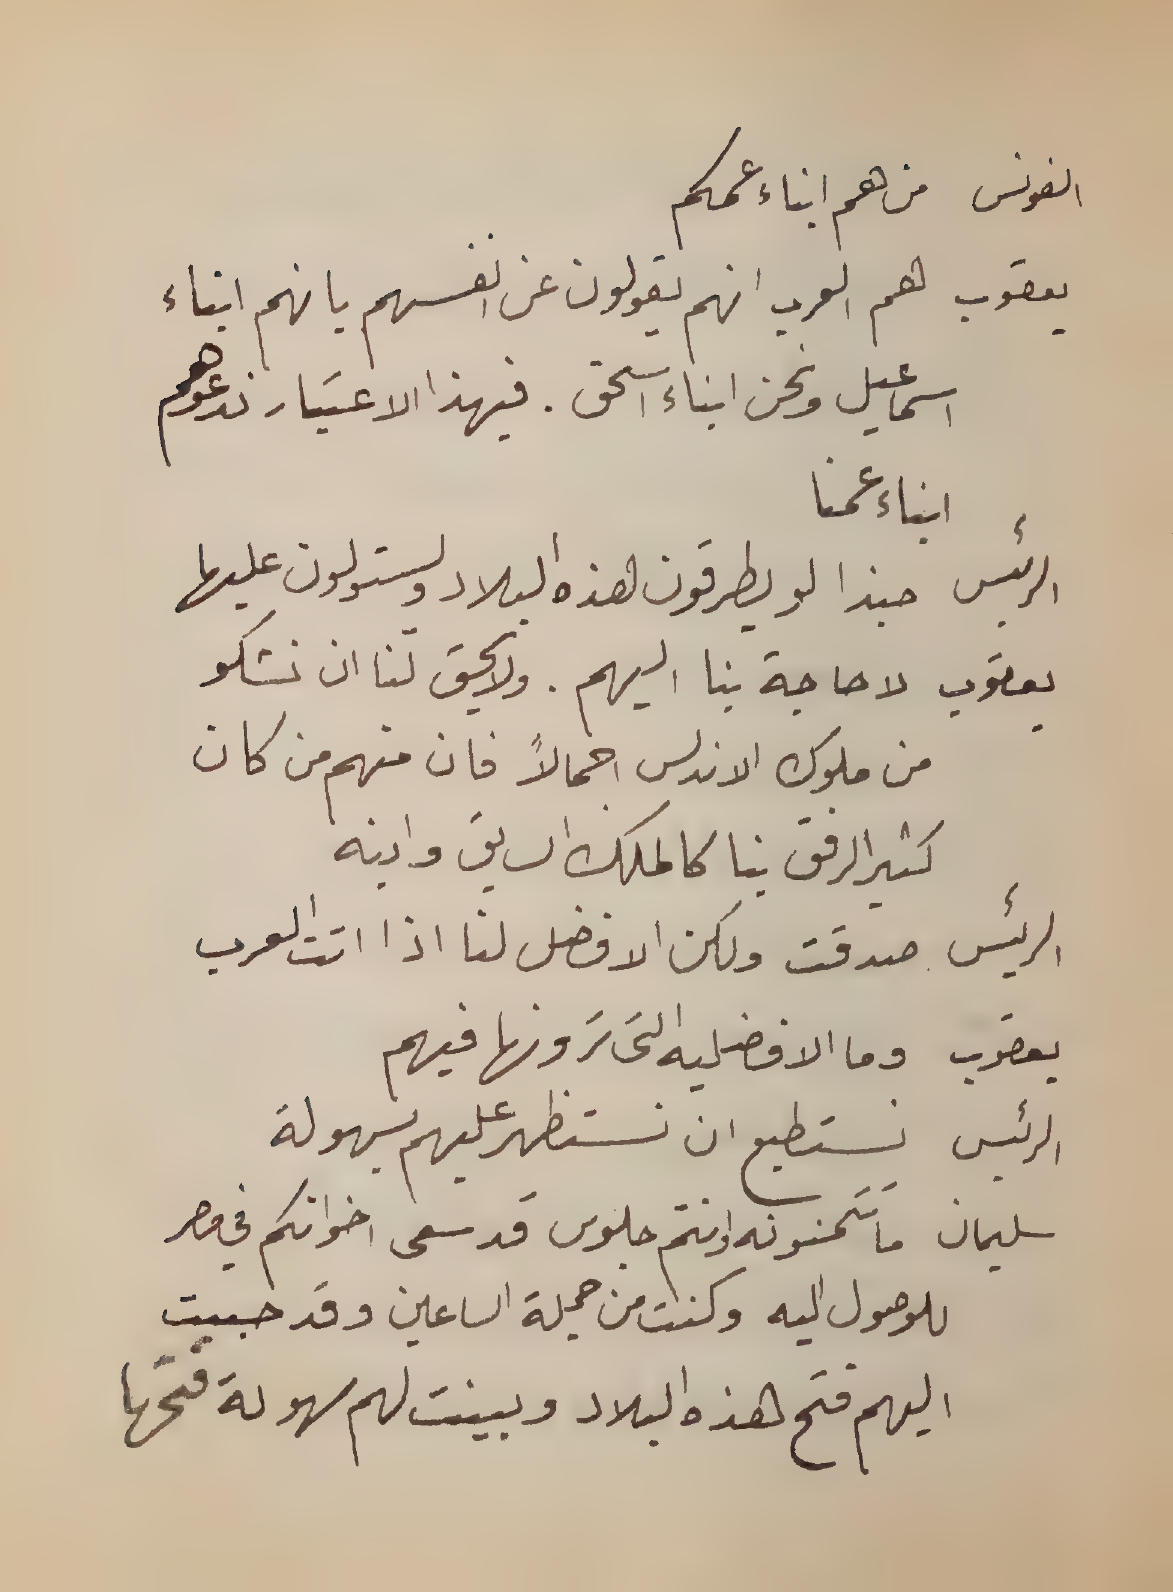 الفونس من هم ابناء عمكم
يعقوب هم العرب انهم يقولون عن انفسهم بانهم ابناء
اسماعيل ونحن ابناء اسحق . فبهذا الاعتبار ندعوهم
ابناء عمنا
الرئيس حبذا لو يطرقون هذه البلاد ويستولون عليها
يعقوب لا حاجة بنا اليهم . ولا يحق لنا ان نشكو
من ملوك الاندلس اجمالاً فان منهم من كان
كثير الرفق بنا كالملك السابق وابنه
الرئيس صدقت ولكن الافضل لنا اذا اتت العرب
يعقوب وما الافضليه التي ترونها فيهم
الرئيس نستطيع ان نستظهر عليهم بسهولة
سليمان ما تتمنونه وانتم جلوس قد سعى اخوانكم في مصر
للوصول اليه وكنت من جملة الساعين وقد حببت
اليهم فتح هذه البلاد وبينت لهم سهولة فتحها